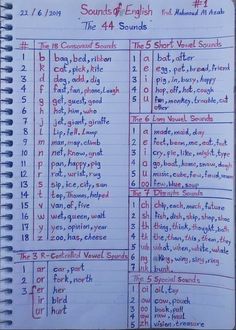 22/6/2019
Sounds of English
Prof. Mohamed Al Azab
#1
"The 44 Sounds"
# The 18 Consonant Sounds
1 b bag, bed, ribbon
2 k cat, pick, kite
3 d dog, add, did
4 f fast, fan, phone, laugh
5 g get, guest, good
6 h hot, him, who
7 j jet, giant, giraffe
8 l lip, fell, lamp
9 m man, map, climb
10 n net, know, gnat
11 p pan, happy, pig
12 r rat, wrist, rug
13 s sip, ice, city, sun
14 t top, Thomas, helped
15 v van, of, five
16 w wet, queen, wait
17 y yes, opinion, year
18 z zoo, has, cheese
The 3 R-Controlled Vowel Sounds
1 ar car, part
2 or fork, north
3 er her
ir bird
ur hurt
The 5 Short Vowel Sounds
1 a bat, after
2 e egg, pet, bread, friend
3 i pig, in, busy, happy
4 o hop, off, hot, cough
5 u fun, monkey, trouble, cut
other
The 6 Long Vowel Sounds
1 a made, maid, day
2 e feet, beam, me, eat,
3 i cry, pie, like, might, type
4 o go, boat, home, snow,
5 u music, cube, few,
6 oo few, blue, soup
The 7 Digraphs Sounds
1 ch chip, each, much, future
2 sh fish, dish, ship, shop, shoe
3 th thing, think, thought, both
4 th the, than, this, them, they
5 wh what, when, white, whale
6 ng king, wing, sing, ring
7 nk bunk,
The 5 Special Sounds
1 oi oil, toy
2 ow cow, pouch
3 oo book, put
4 aw raw, haul
5 zh vision, treasure